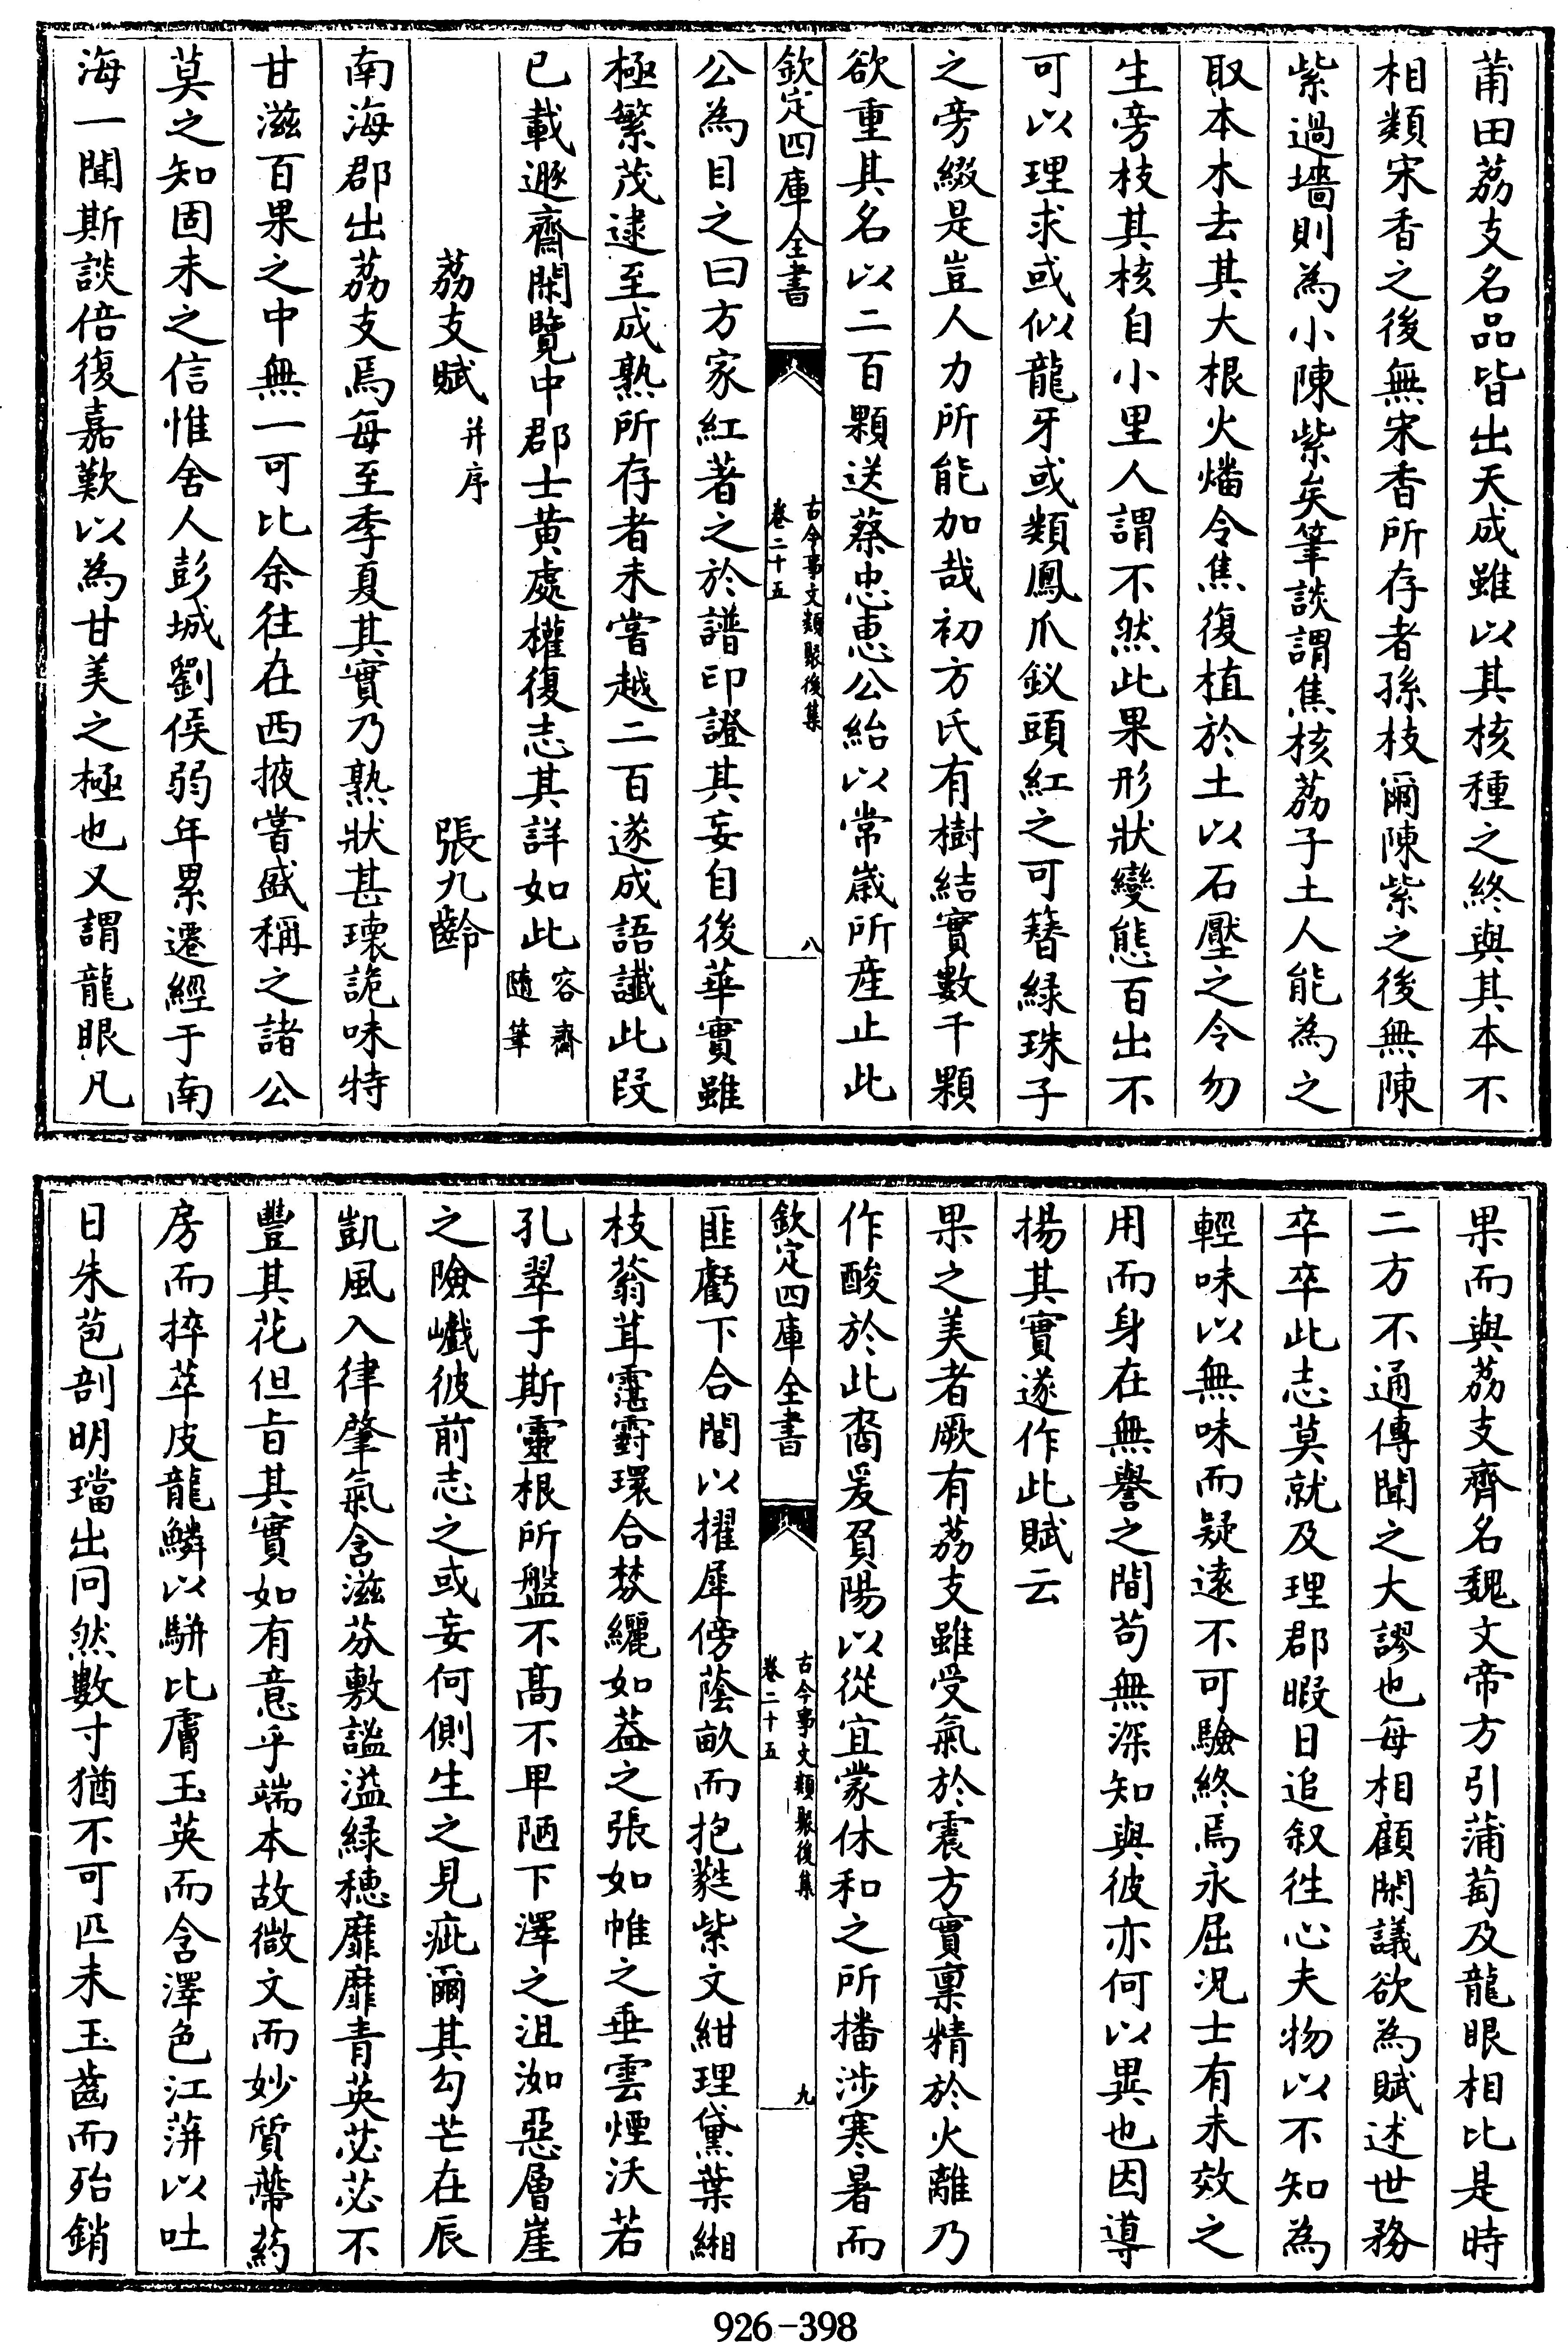 莆田荔支名品皆出天成雖以其核種之終與其本不
相類宋香之後無宋香所存者孫枝爾陳紫之後無陳
紫過墻則為小陳紫矣筆談謂焦核荔子土人能為之
取本木去其大根火燔令焦復植於土以石壓之令勿
生旁枝其核自小里人謂不然此果形狀變態百出不
可以理求或似龍牙或類鳳爪釵頭紅之可簪綠珠子
之旁綴是豈人力所能加哉初方氏有樹結實數千顆
欲重其名以二百顆送蔡忠惠公紿以常歲所產止此
欽定四庫全書
古今事文類聚後集
卷二十五
八
公為目之曰方家紅著之於譜印證其妄自後華實雖
極繁茂逮至成熟所存者未嘗越二百遂成語讖此段
已載遯齋閑覽中郡士黃處權復志其詳如此容齋隨筆
荔支賦并序
張九齡
南海郡出荔支焉每至季夏其實乃熟狀甚瓌詭味特
甘滋百果之中無一可比余往在西掖嘗盛稱之諸公
莫之知固未之信惟舍人彭城劉侯弱年累遷經于南
海一聞斯談倍復嘉歎以為甘美之極也又謂龍眼凡
果而與荔支齊名魏文帝方引蒲萄及龍眼相比是時
二方不通傳聞之大謬也每相顧閑議欲為賦述世務
卒卒此志莫就及理郡暇日追叙徃心夫物以不知為
輕味以無味而疑遠不可驗終焉永屈況士有未效之
用而身在無譽之間苟無深知與彼亦何以異也因導
揚其實遂作此賦云
果之美者厥有荔支雖受氣於震方實稟精於火離乃
作酸於此裔爰負陽以從宜蒙休和之所播涉寒暑而
欽定四庫全書
古今事文類聚後集
卷二十五
九
匪虧下合圍以擢犀傍蔭畝而抱蕤紫文紺理黛葉緗
枝蓊茸霮䨴環合棼纚如葢之張如帷之垂雲煙沃若
孔翠于斯靈根所盤不髙不卑陋下澤之沮洳惡層崖
之險巇彼前志之或妄何側生之見疵爾其勾芒在辰
凱風入律肇氣含滋芬敷謐溢綠穗靡靡青英苾苾不
豐其花但㫖其實如有意乎端本故微文而妙質蔕葯
房而捽萃皮龍鱗以駢比膚玉英而含澤色江蓱以吐
日朱苞剖明璫出冋然數寸猶不可匹未玉齒而殆銷
926-398